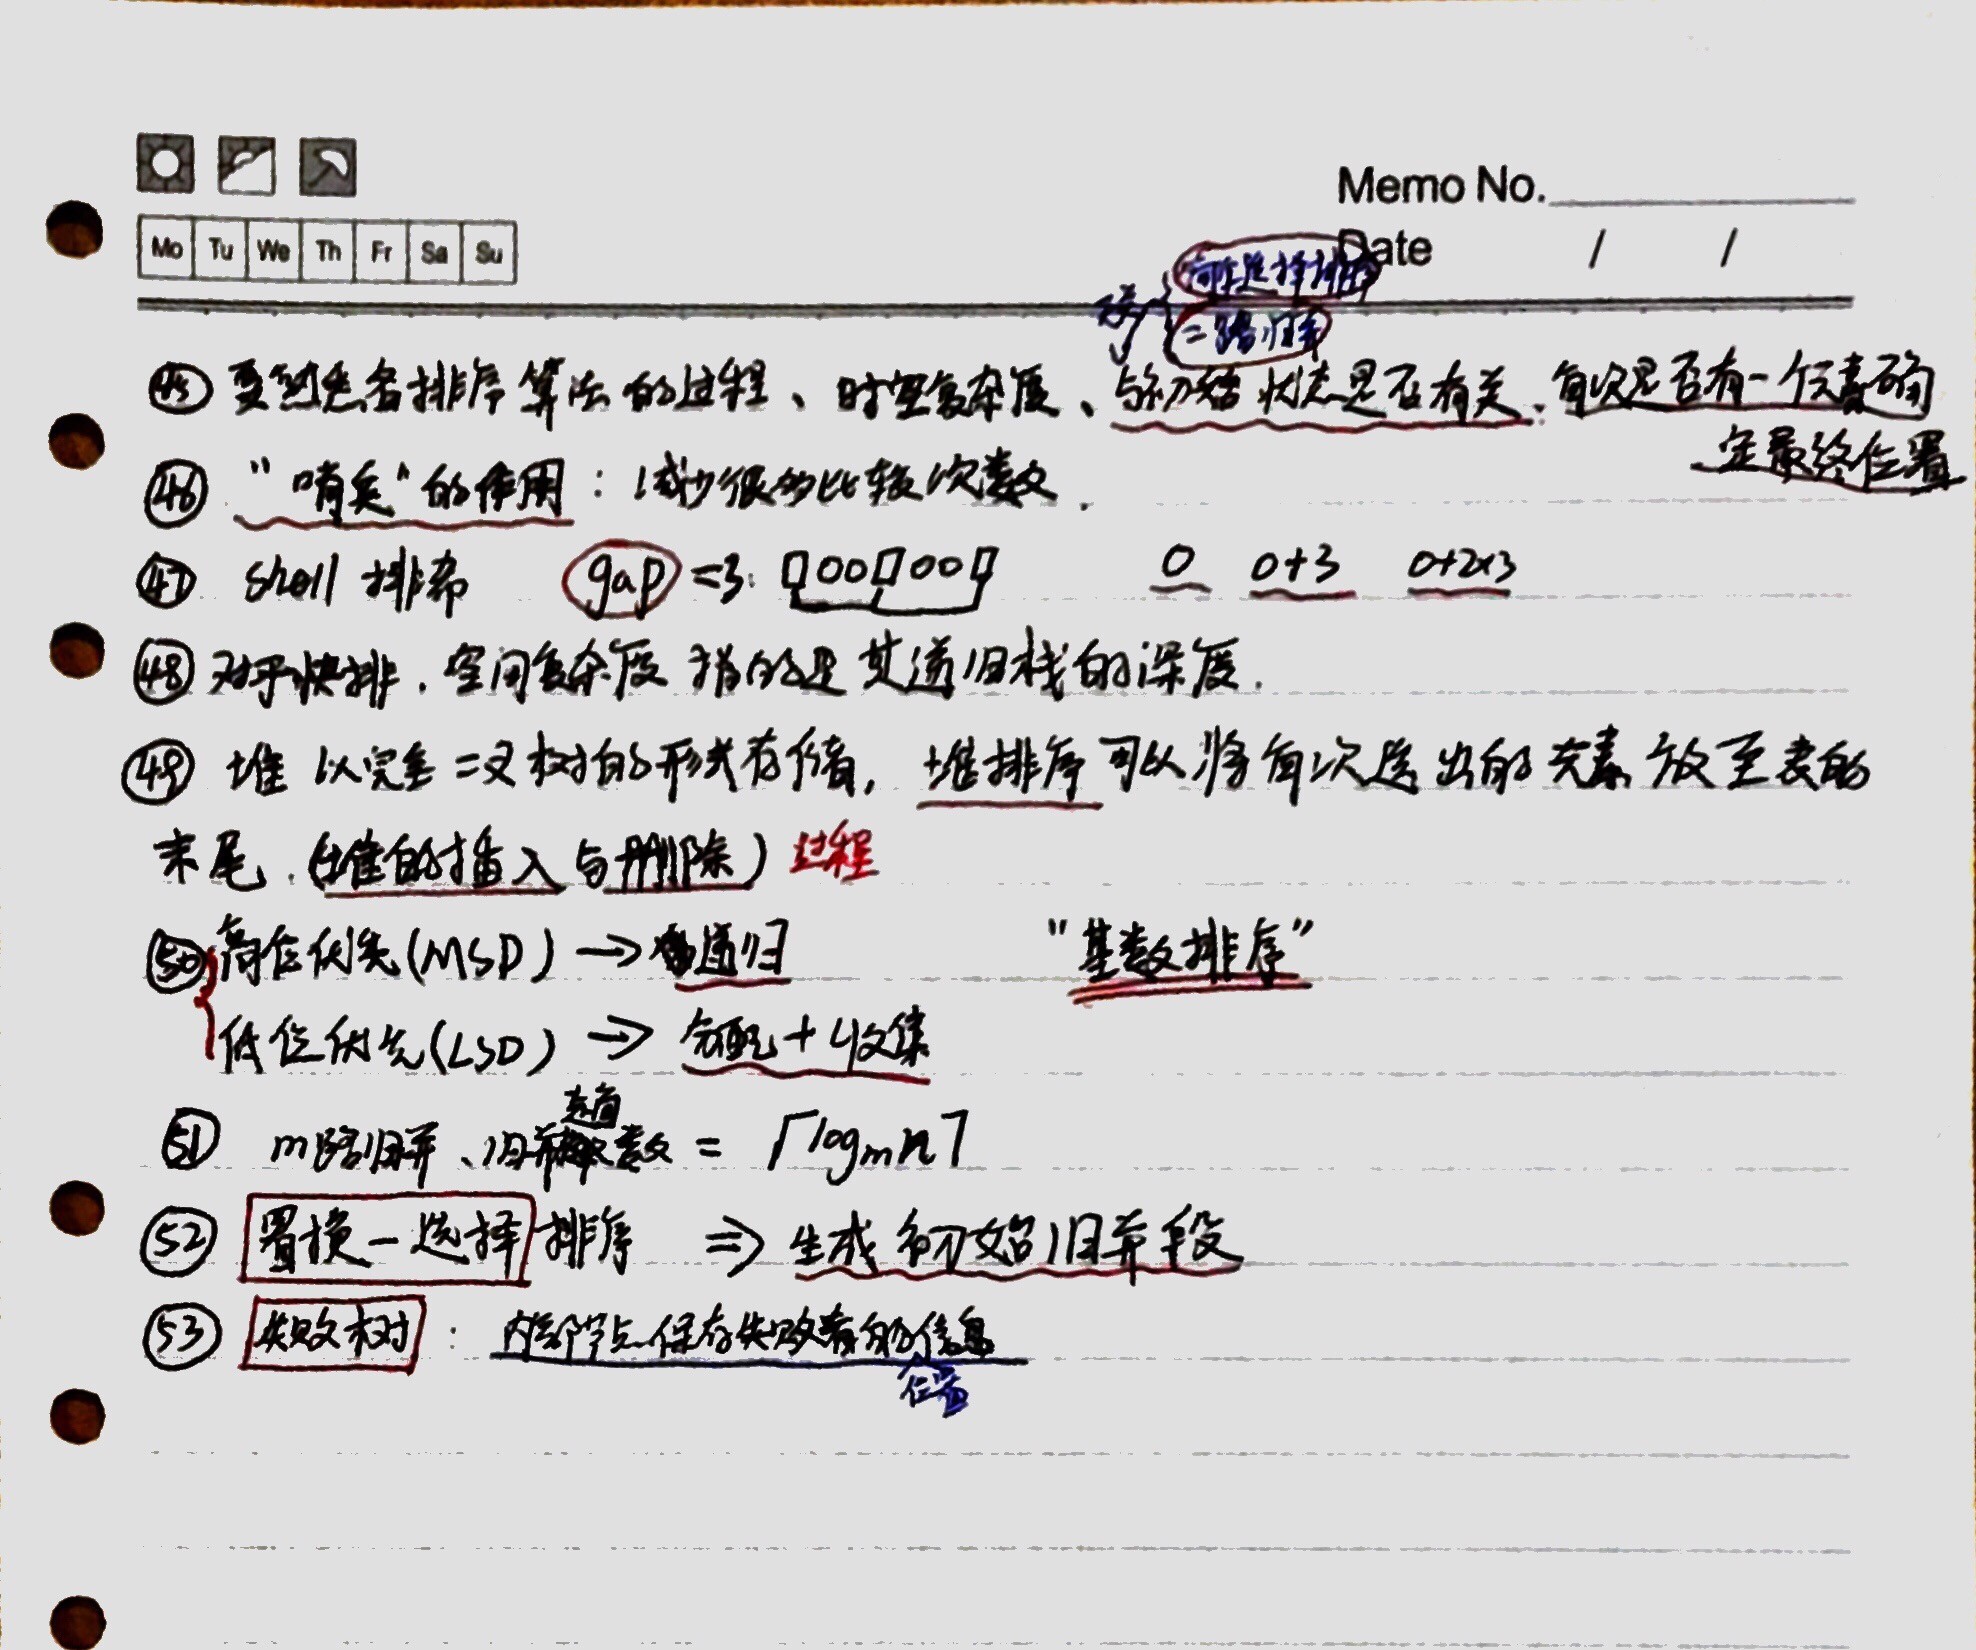 Memo No.
Mo Tu We Th Fr Sa Su
Date / /
简单选择排序
二路归并
㊺ 要熟悉各排序算法的过程、时空复杂度、与初始状态是否有关、每次是否有一个元素确
定最终位置
㊻ "哨兵"的作用：减少很多比较次数.
㊼ shell 排序 gap =3: 0 0+3 0+2×3
㊽ 对于快排，空间复杂度指的是其递归栈的深度.
㊾ 堆以完全二叉树的形式存储，堆排序可以将每次选出的元素放至表的
末尾.(堆的插入与删除) 过程
㊿ 高位优先(MSD) → 递归 "基数排序"
低位优先(LSD) → 分配+收集
51 m路归并、归并趟数 = ⌈logₘn⌉
52 置换-选择排序 ⇒ 生成初始归并段
53 失败树: 内部节点保存失败者的信息
位置